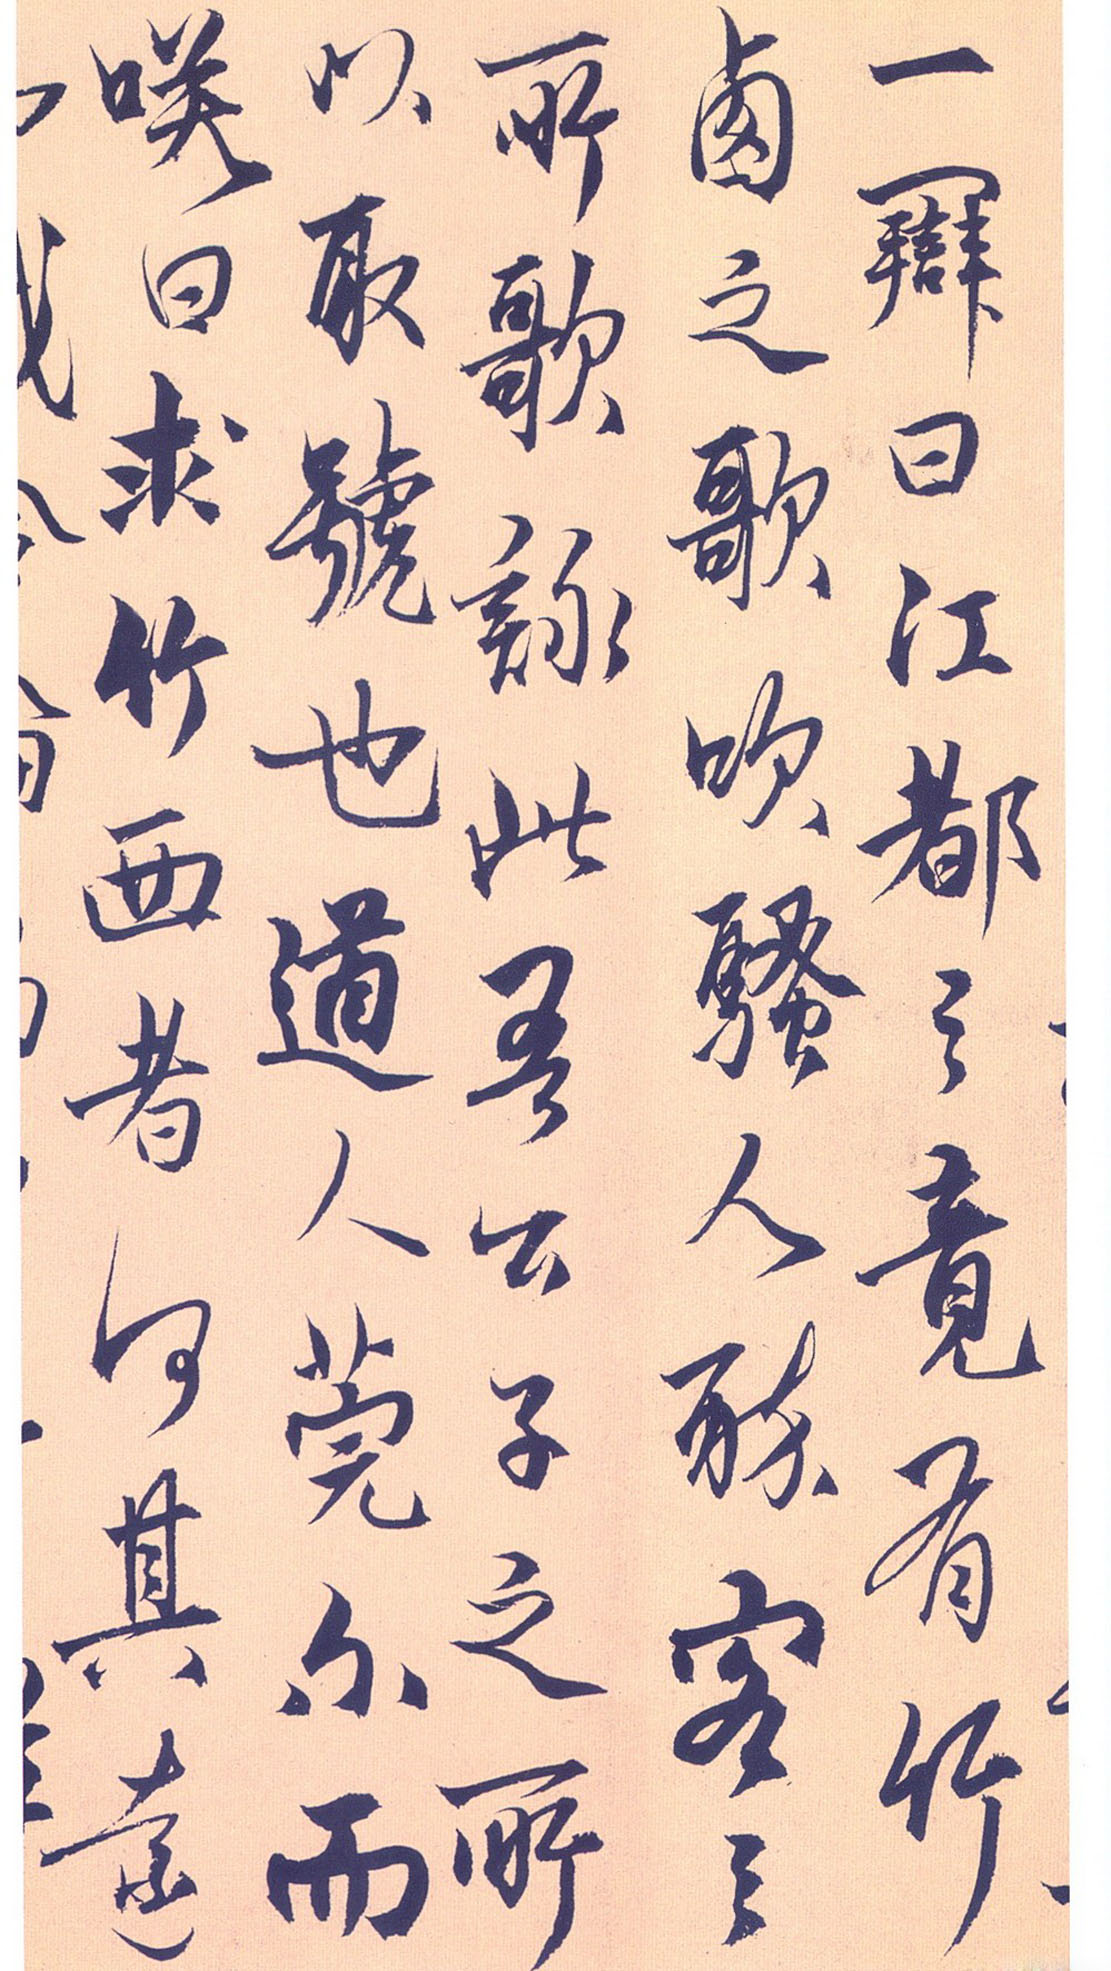 一辯曰江都之竟有竹
西之歌吹騷人醉客之
所歌詠此吾公子之所
以取號也道人莞尔而
咲曰求竹西者何其遠